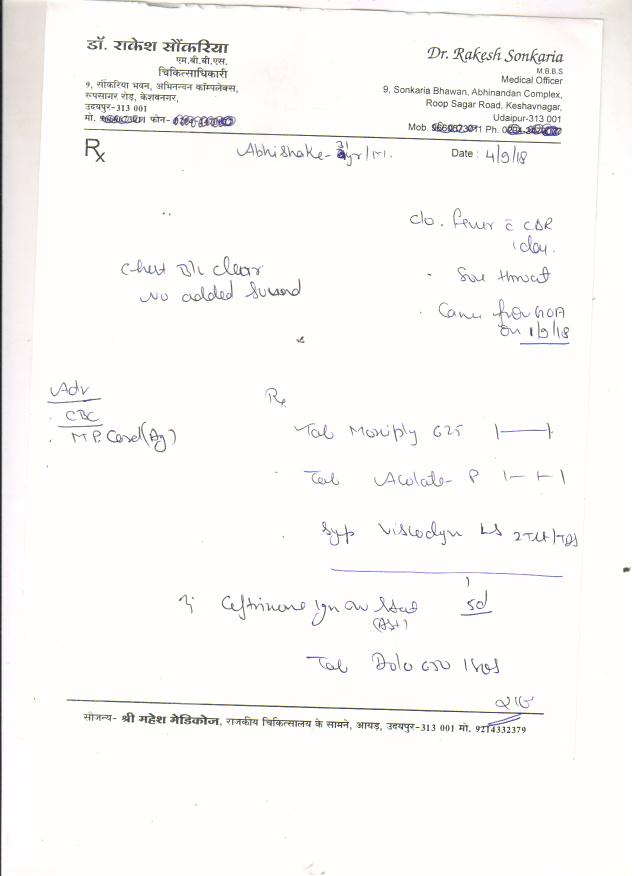 डॉ. राकेश सौंकरिया
एम.बी.बी.एस.
चिकित्साधिकारी
9, सौंकरिया भवन, अभिनन्दन कॉम्पलेक्स,
रूपसागर रोड़, केशवनगर,
उदयपुर-313 001
मो. फोन-
Dr. Rakesh Sonkaria
M.B.B.S
Medical Officer
9, Sonkaria Bhawan, Abhinandan Complex,
Roop Sagar Road, Keshavnagar,
Udaipur-313 001
Mob. Ph.
Rx
Abhishake- yr/M.
Date : 4/9/18
c/o. fever c̄ C&R
1 day.
Chest B/L clear
No added Sound
Sore throat
Came from GOA
on 1/9/18
Adv
CBC
MP. Card (Ag)
Rx
Tab 625 1——1
Tab P 1—1—1
Syp Viscodyn LS 2TSF/TDS
5d
Ceftriaxone 1gm IV Stat
(AST)
Tab Dolo 650 1 SOS
सौजन्य- श्री महेश मेडिकोज, राजकीय चिकित्सालय के सामने, आयड़, उदयपुर-313 001 मो. 9214332379